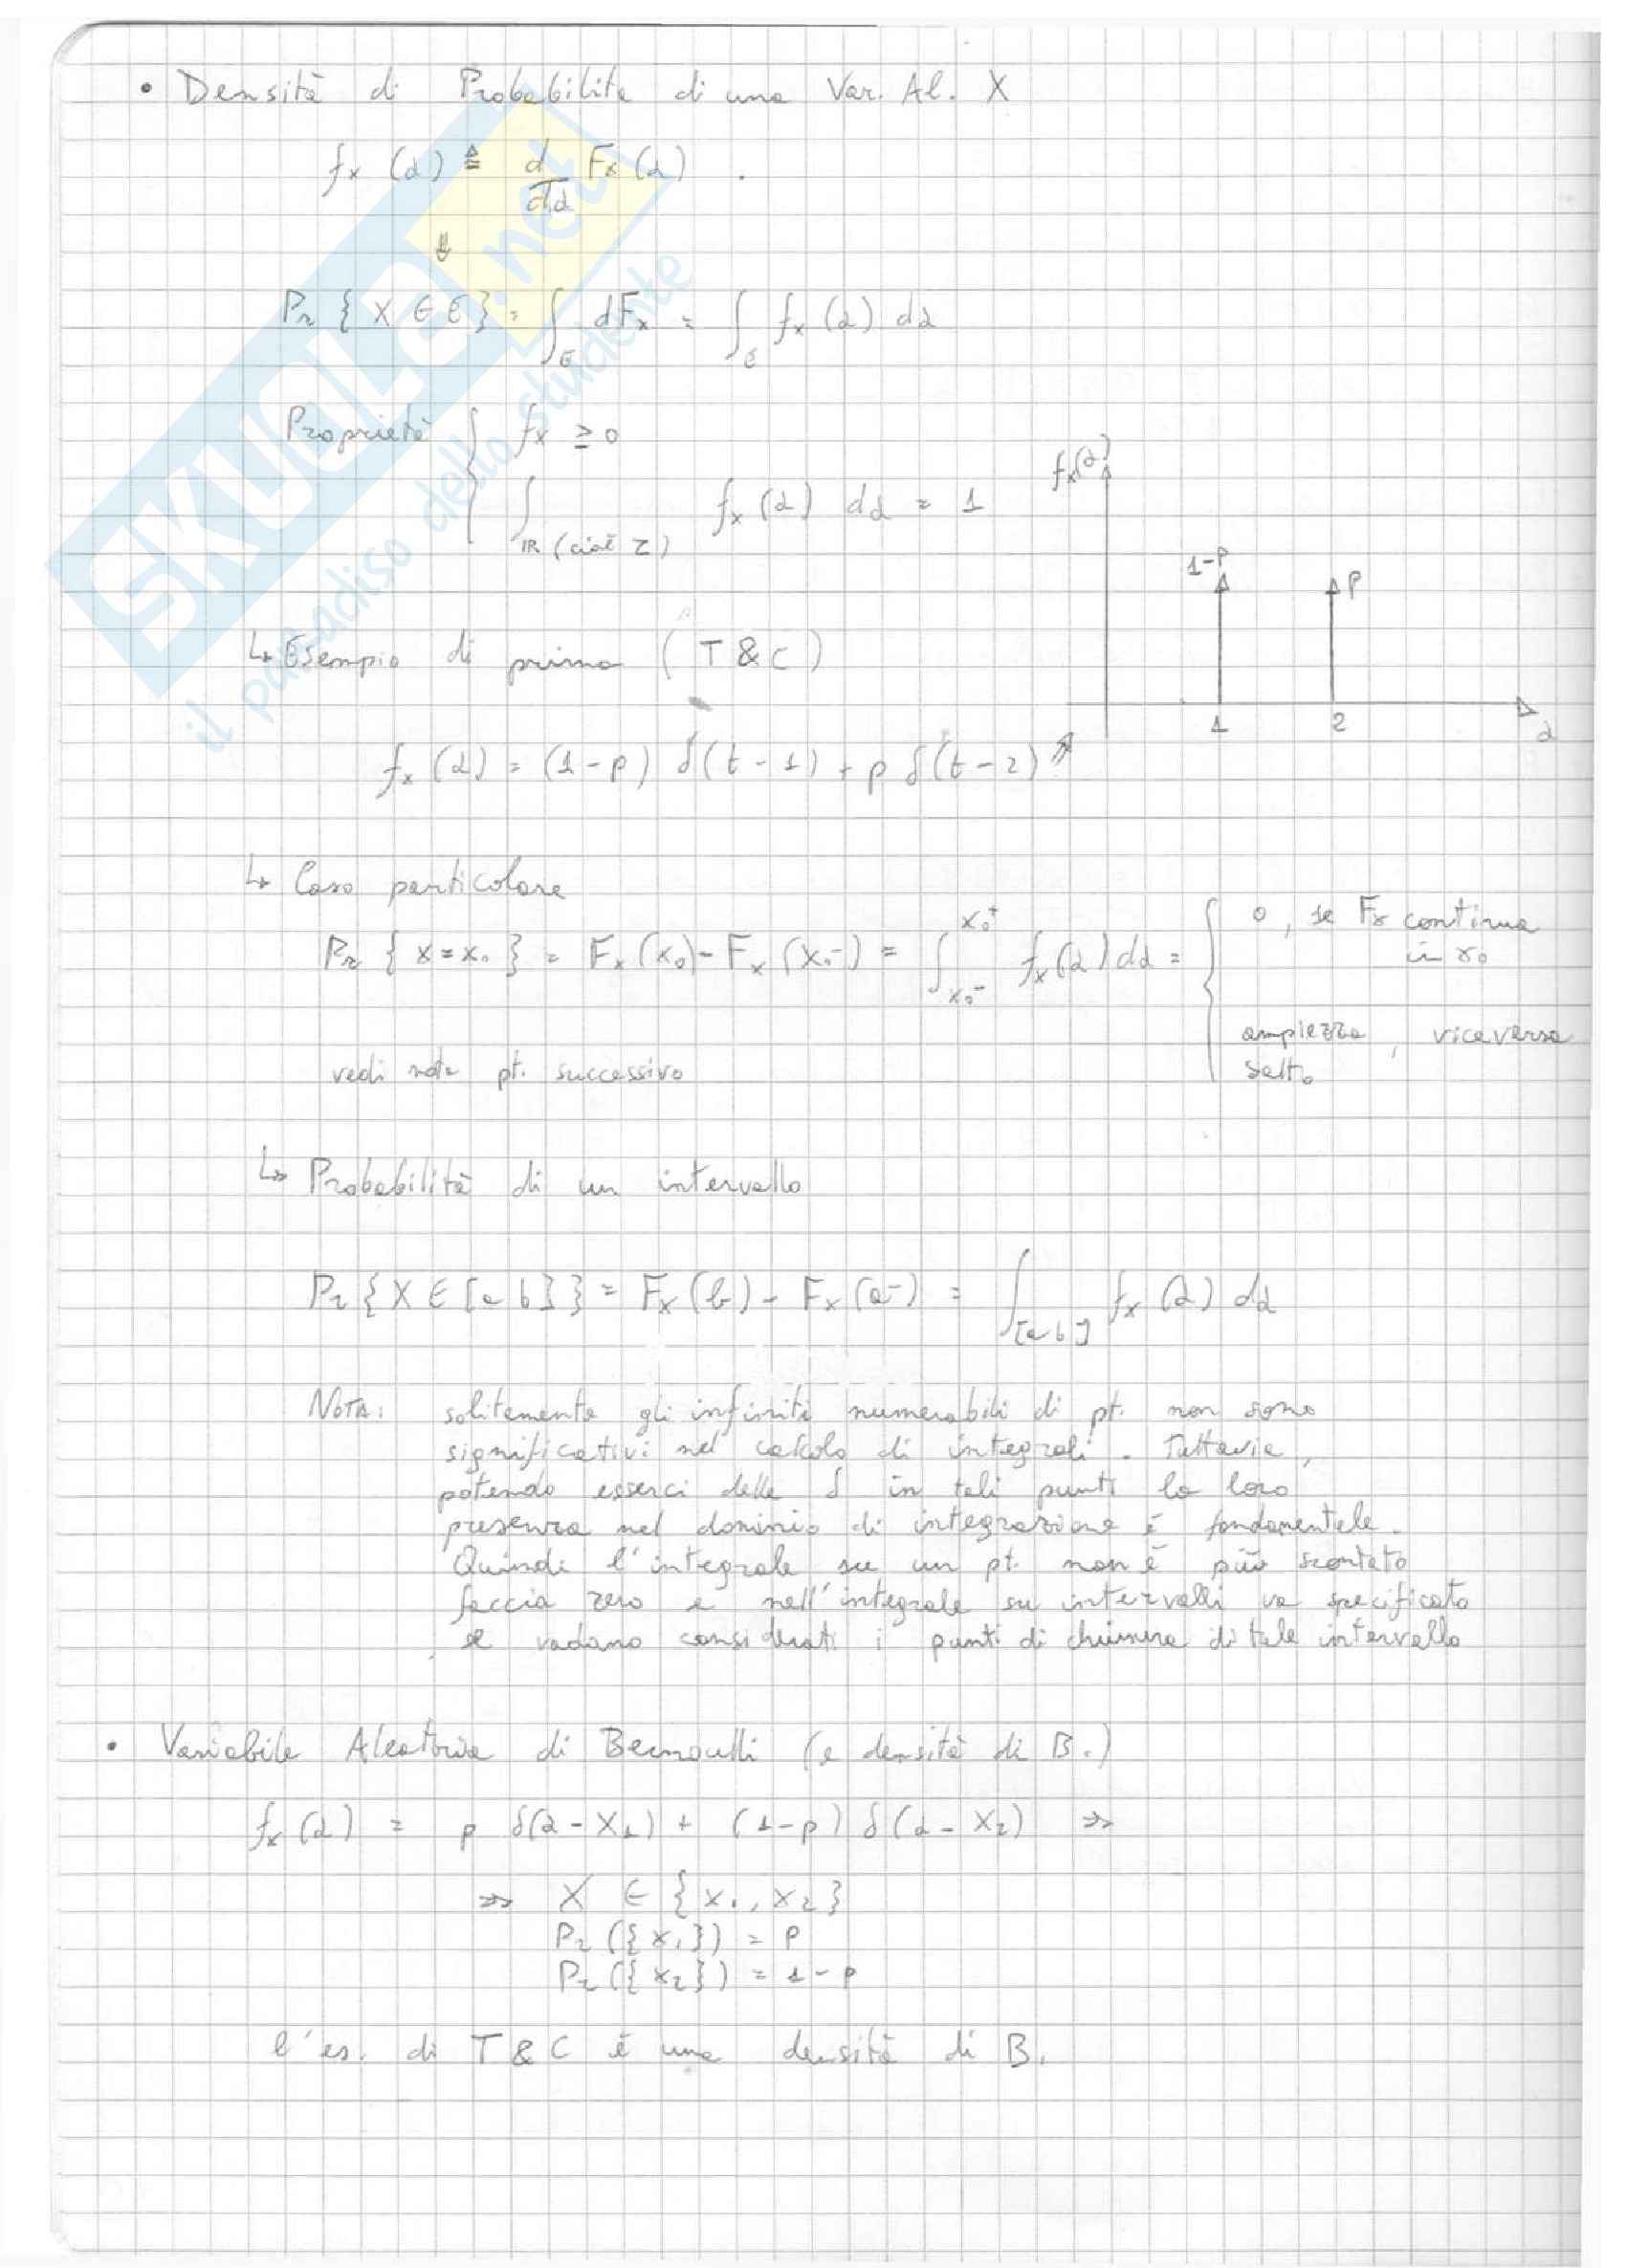 • Densità di Probabilità di una Var. Al. X
fx (α) ≜ d/dα Fx (α) .
⇓
Pr { X ∈ E } = ∫_E dFx = ∫_E fx (α) dα
Proprietà { fx ≥ 0
∫_{IR (cioè Z)} fx (α) dα = 1
fx(α)
1-p
p
1 2 α
↳ Esempio di prima ( T & C )
fx (α) = (1-p) δ(t-1) + p δ(t-2) ⇗
↳ Caso particolare
Pr { x = x₀ } = Fx (x₀) - Fx (x₀⁻) = ∫_{x₀⁻}^{x₀⁺} fx (α) dα = { 0 , se Fx continua in x₀
ampiezza salto , viceversa
vedi nota pt. successivo
↳ Probabilità di un intervallo
Pr { X ∈ [a b] } = Fx (b) - Fx (a⁻) = ∫_{[a b]} fx (α) dα
NOTA: solitamente gli infiniti numerabili di pt. non sono
significativi nel calcolo di integrali. Tuttavia,
potendo esserci delle δ in tali punti la loro
presenza nel dominio di integrazione è fondamentale.
Quindi l'integrale su un pt. non è più scontato
faccia zero e nell'integrale su intervalli va specificato
se vadano considerati i punti di chiusura di tale intervallo
• Variabile Aleatoria di Bernoulli (e densità di B.)
fx (α) = p δ(α - X₁) + (1-p) δ(α - X₂) ⇒
⇒ X ∈ { x₁, x₂ }
Pr ({x₁}) = p
Pr ({x₂}) = 1-p
l'es. di T & C è una densità di B.
SKUOLA.net
il paradiso dello studente